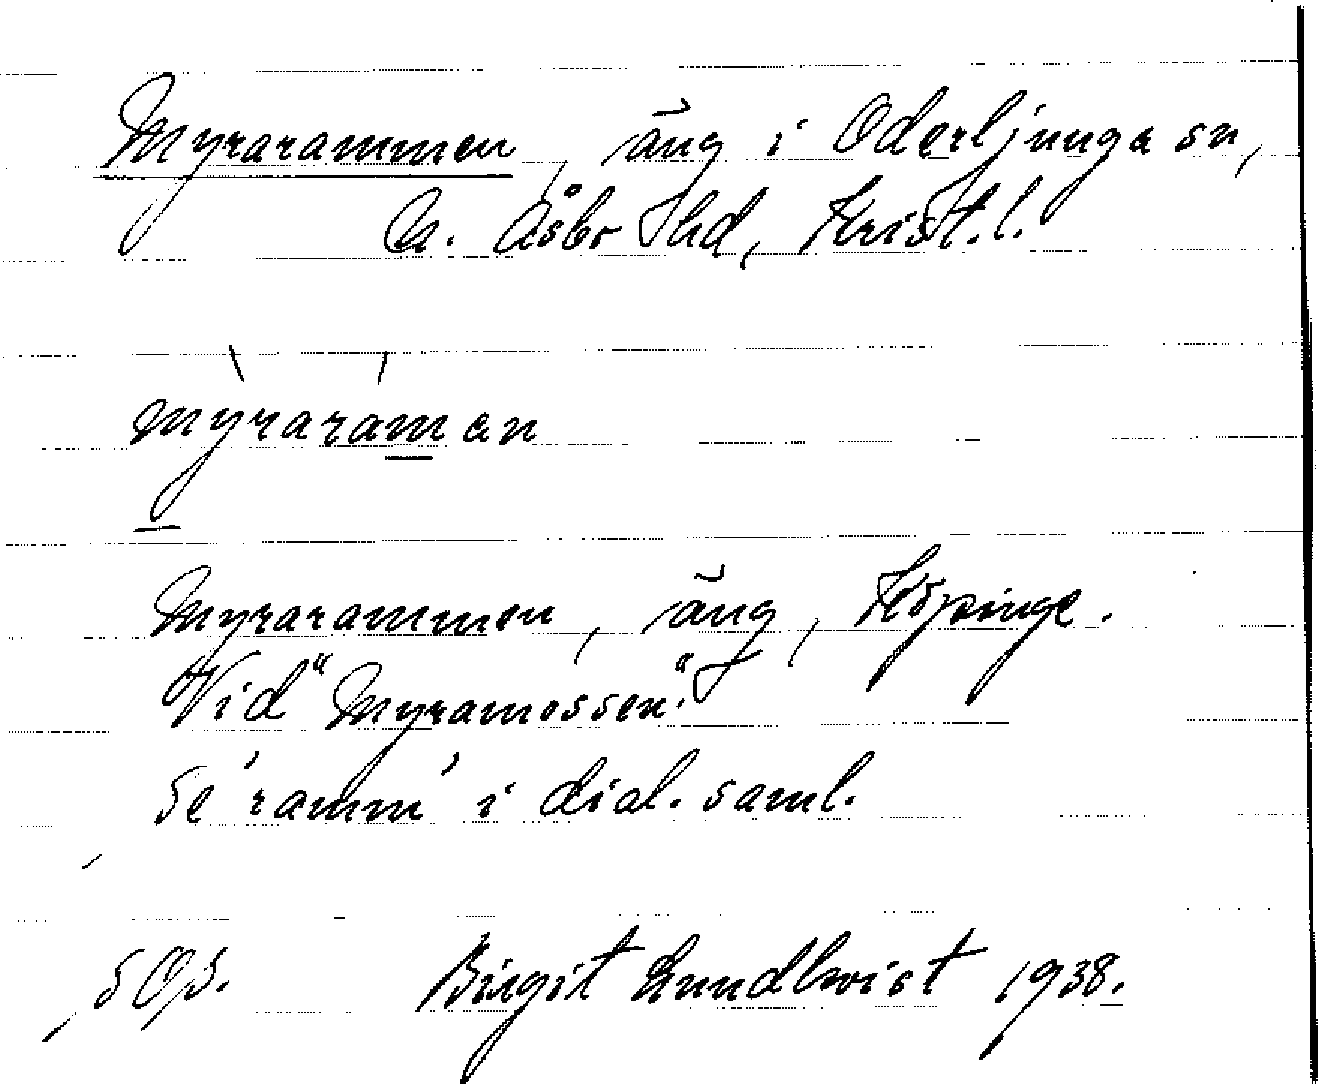 Myrarammen, äng i Oderljunga sn,
N. Åsbo Hd, Krist. l.
myraraman
Myrarammen, äng, Köpinge.
Vid "Myramossen".
Se 'ramm' i dial. saml.
Birgit Lundkvist 1938.